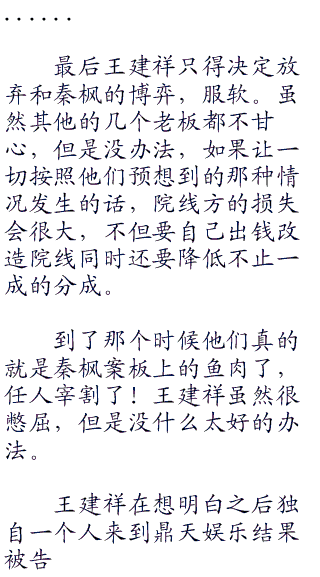 ······
最后王建祥只得决定放
弃和秦枫的博弈，服软。虽
然其他的几个老板都不甘
心，但是没办法，如果让一
切按照他们预想到的那种情
况发生的话，院线方的损失
会很大，不但要自己出钱改
造院线同时还要降低不止一
成的分成。
到了那个时候他们真的
就是秦枫案板上的鱼肉了，
任人宰割了！王建祥虽然很
憋屈，但是没什么太好的办
法。
王建祥在想明白之后独
自一个人来到鼎天娱乐结果
被告